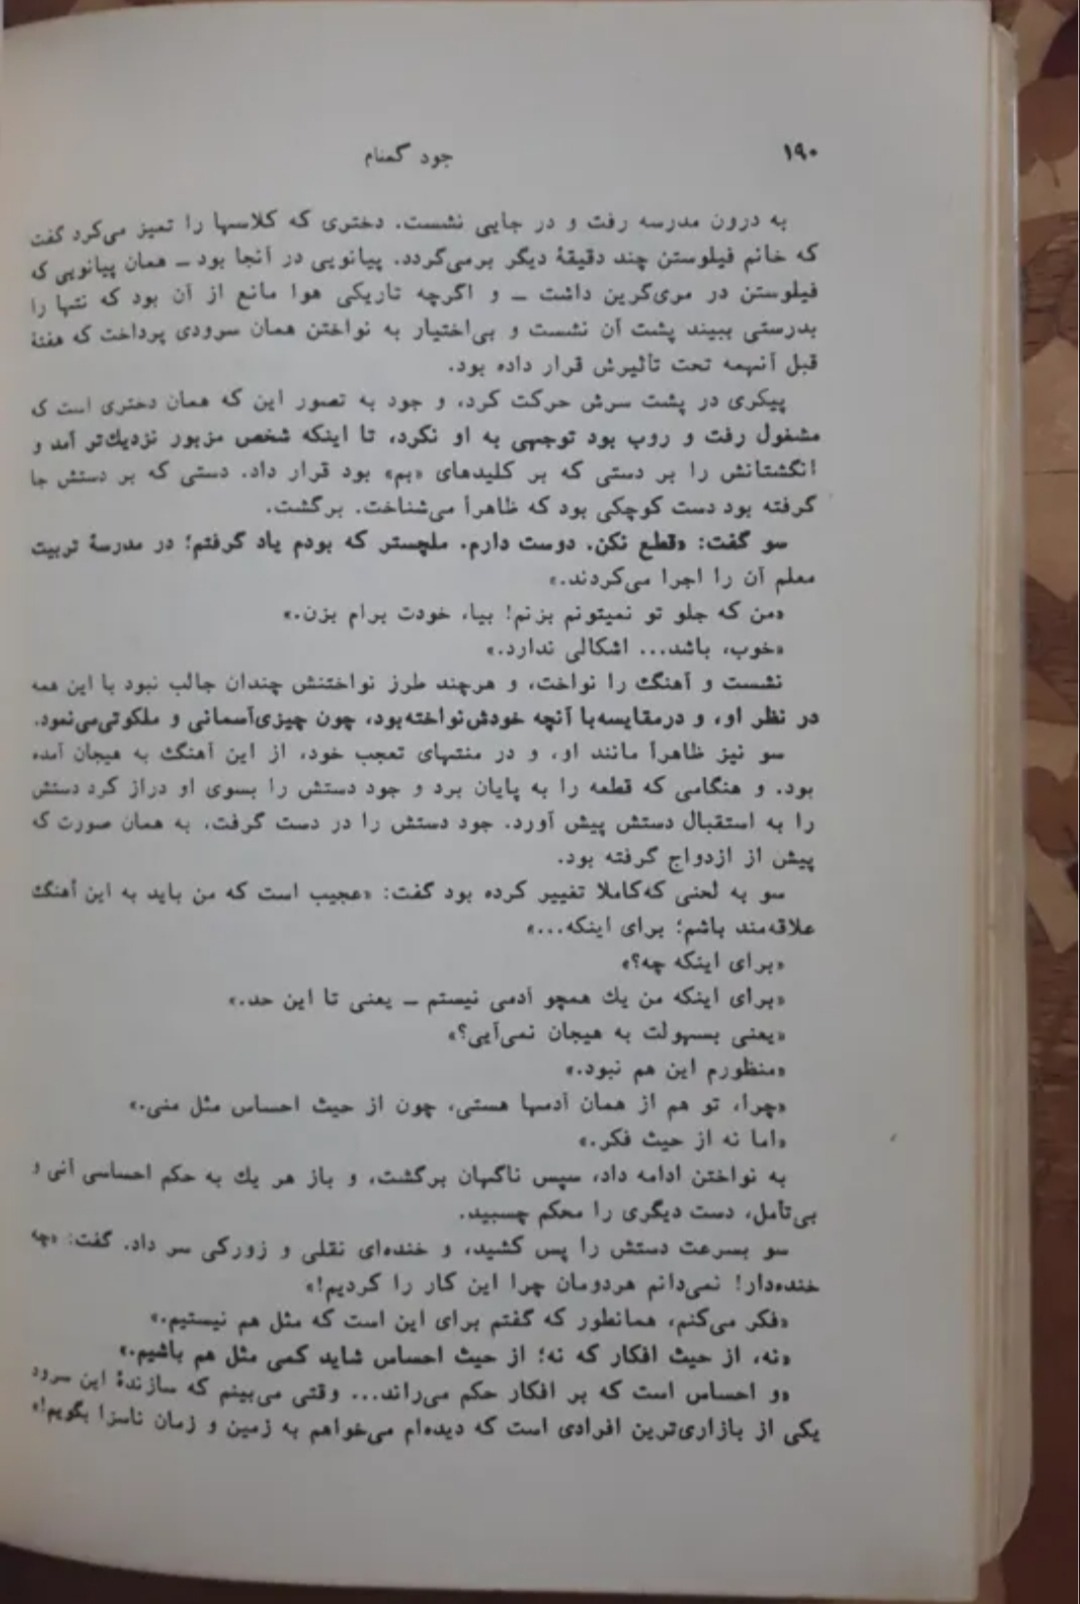 ۱۹۰
جود گمنام
به درون مدرسه رفت و در جایی نشست. دختری که کلاسها را تمیز می‌کرد گفت
که خانم فیلوستن چند دقیقهٔ دیگر برمی‌گردد. پیانویی در آنجا بود ــ همان پیانویی که
فیلوستن در مری‌گرین داشت ــ و اگرچه تاریکی هوا مانع از آن بود که نتها را
بدرستی ببیند پشت آن نشست و بی‌اختیار به نواختن همان سرودی پرداخت که هفتهٔ
قبل آنهمه تحت تأثیرش قرار داده بود.
پیکری در پشت سرش حرکت کرد، و جود به تصور این که همان دختری است که
مشغول رفت و روب بود توجهی به او نکرد، تا اینکه شخص مزبور نزدیك‌تر آمد و
انگشتانش را بر دستی که بر کلیدهای «بم» بود قرار داد. دستی که بر دستش جا
گرفته بود دست کوچکی بود که ظاهراً می‌شناخت. برگشت.
سو گفت: «قطع نکن. دوست دارم. ملچستر که بودم یاد گرفتم؛ در مدرسهٔ تربیت
معلم آن را اجرا می‌کردند.»
«من که جلو تو نمیتونم بزنم! بیا، خودت برام بزن.»
«خوب، باشد... اشکالی ندارد.»
نشست و آهنگ را نواخت، و هرچند طرز نواختنش چندان جالب نبود با این همه
در نظر او، و درمقایسه‌با آنچه خودش‌نواخته‌بود، چون چیزی‌آسمانی و ملکوتی‌می‌نمود.
سو نیز ظاهراً مانند او، و در منتهای تعجب خود، از این آهنگ به هیجان آمده
بود. و هنگامی که قطعه را به پایان برد و جود دستش را بسوی او دراز کرد دستش
را به استقبال دستش پیش آورد. جود دستش را در دست گرفت، به همان صورت که
پیش از ازدواج گرفته بود.
سو به لحنی که‌کاملا تغییر کرده بود گفت: «عجیب است که من باید به این آهنگ
علاقه‌مند باشم؛ برای اینکه...»
«برای اینکه چه؟»
«برای اینکه من یك همچو آدمی نیستم ــ یعنی تا این حد.»
«یعنی بسهولت به هیجان نمی‌آیی؟»
«منظورم این هم نبود.»
«چرا، تو هم از همان آدمها هستی، چون از حیث احساس مثل منی.»
«اما نه از حیث فکر.»
به نواختن ادامه داد، سپس ناگهان برگشت، و باز هر یك به حکم احساسی آنی و
بی‌تأمل، دست دیگری را محکم چسبید.
سو بسرعت دستش را پس کشید، و خنده‌ای نقلی و زورکی سر داد. گفت: «چه
خنده‌دار! نمی‌دانم هردومان چرا این کار را کردیم!»
«فکر می‌کنم، همانطور که گفتم برای این است که مثل هم نیستیم.»
«نه، از حیث افکار که نه؛ از حیث احساس شاید کمی مثل هم باشیم.»
«و احساس است که بر افکار حکم می‌راند... وقتی می‌بینم که سازندهٔ این سرود
یکی از بازاری‌ترین افرادی است که دیده‌ام می‌خواهم به زمین و زمان ناسزا بگویم!»